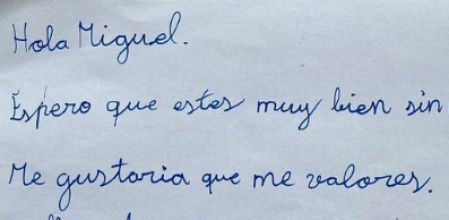 Hola Miguel.
Espero que estes muy bien sin
Me gustaria que me valores.